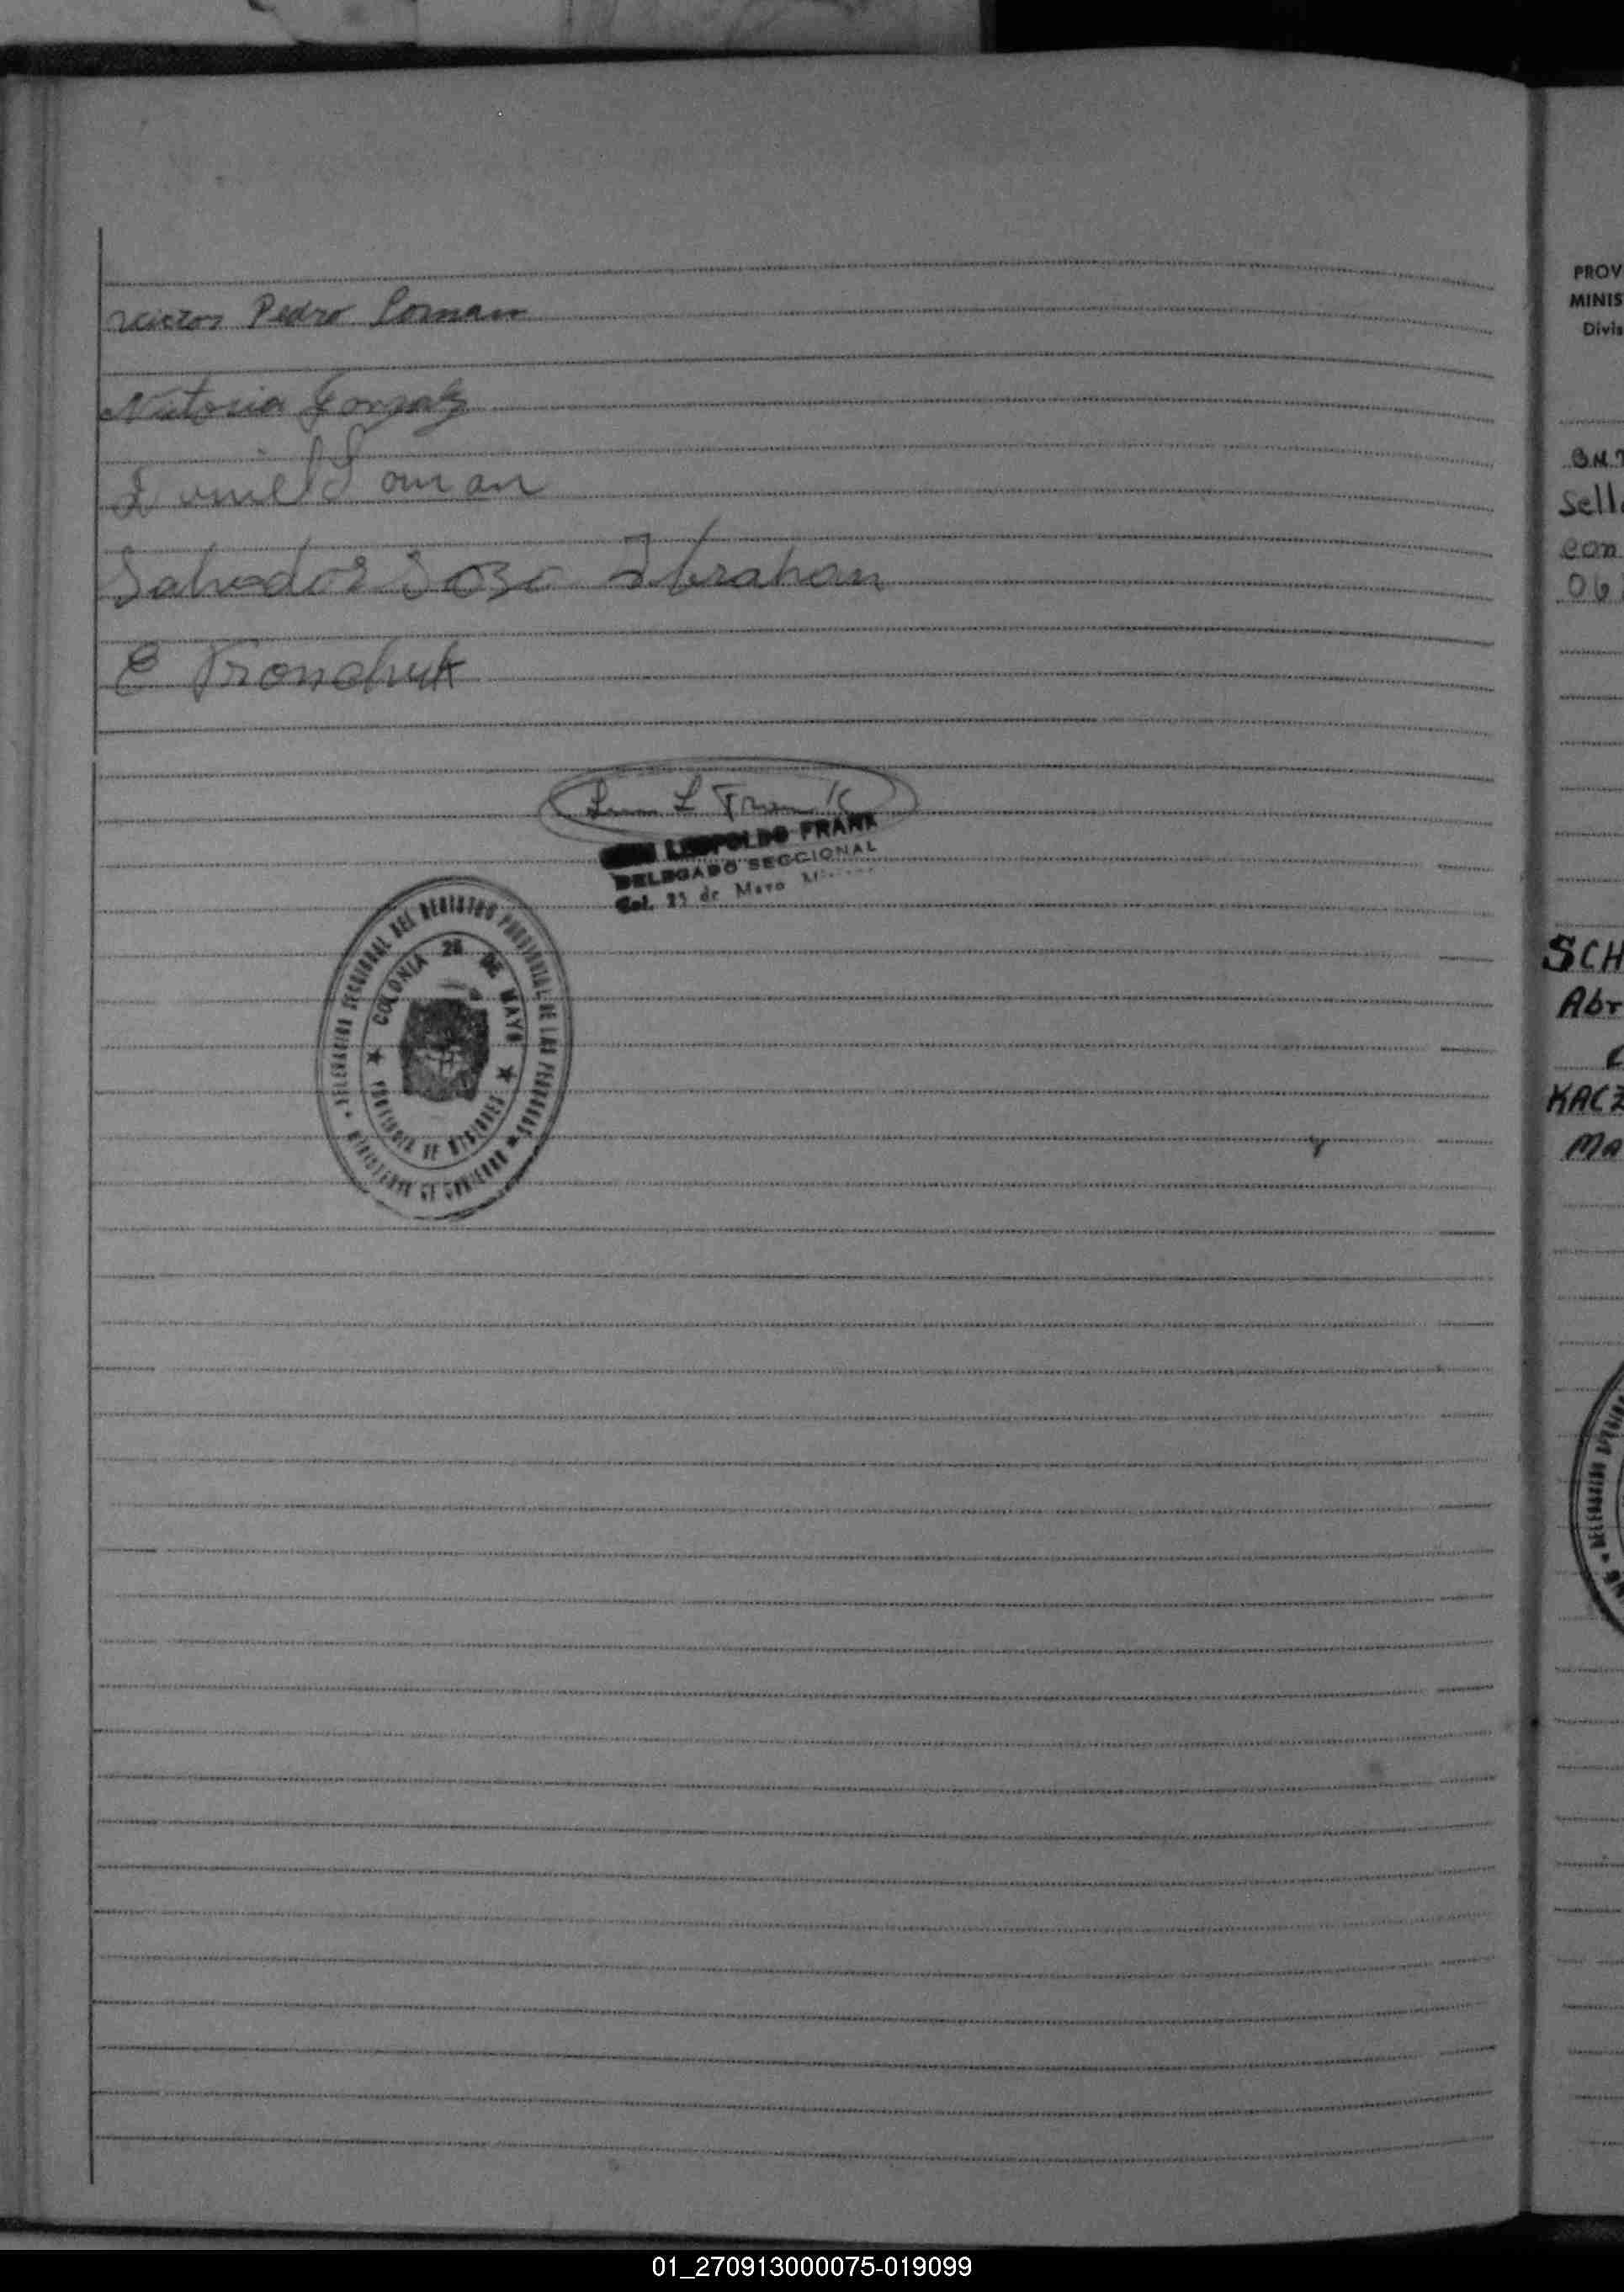 Victor Pedro Loman
Victoria Gonzalz
Daniel Loman
Salvador Sozo Ibrahan
E Pronchuk
L Frank
LEOPOLDO FRANK
DELEGADO SECCIONAL
Col. 25 de Mayo
DELEGACION SECCIONAL DEL REGISTRO PROVINCIAL DE LAS PERSONAS
MINISTERIO DE GOBIERNO
COLONIA 25 DE MAYO
PROVINCIA DE MISIONES
PROV
MINIS
Divis
Sell
con
06
SCH
Abr
KACZ
MA
01_270913000075-019099